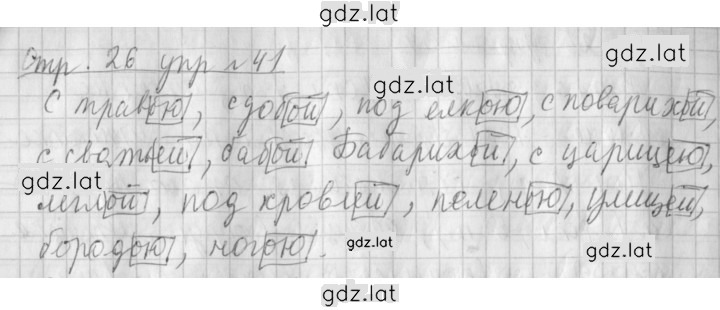 gdz.lat
Стр. 26 упр № 41
gdz.lat
С травою, сдобой, под елкою, с поварихой,
gdz.lat
с сватьей, бабой Бабарихой, с царицею,
gdz.lat
метлой, под кровлей, пеленою, улицей,
gdz.lat
бородою, ногою.
gdz.lat
gdz.lat
gdz.lat